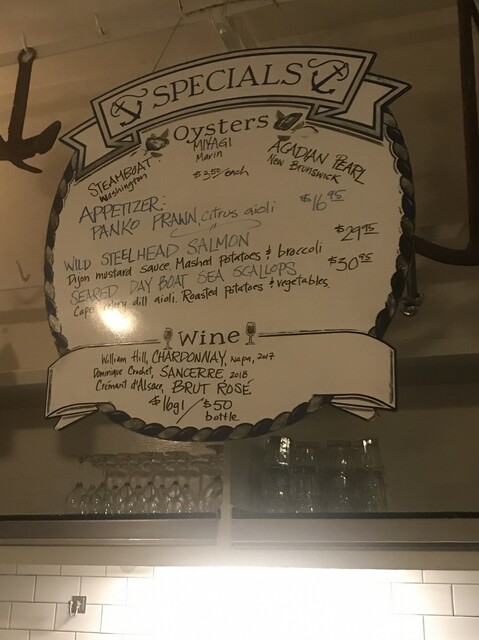 SPECIALS
Oysters
STEAMBOAT
Washington
MIYAGI
Marin
ACADIAN PEARL
New Brunswick
$3.50/each
APPETIZER:
PANKO PRAWN, citrus aioli $16.95
WILD STEELHEAD SALMON $29.95
Dijon mustard sauce. Mashed potatoes & broccoli
SEARED DAY BOAT SEA SCALLOPS $30.95
dill aioli. Roasted potatoes & vegetables.
Wine
William Hill, CHARDONNAY, Napa, 2017
Dominique Crochet, SANCERRE, 2018
Crémant d'Alsace, BRUT ROSÉ
$16gl / $50
bottle